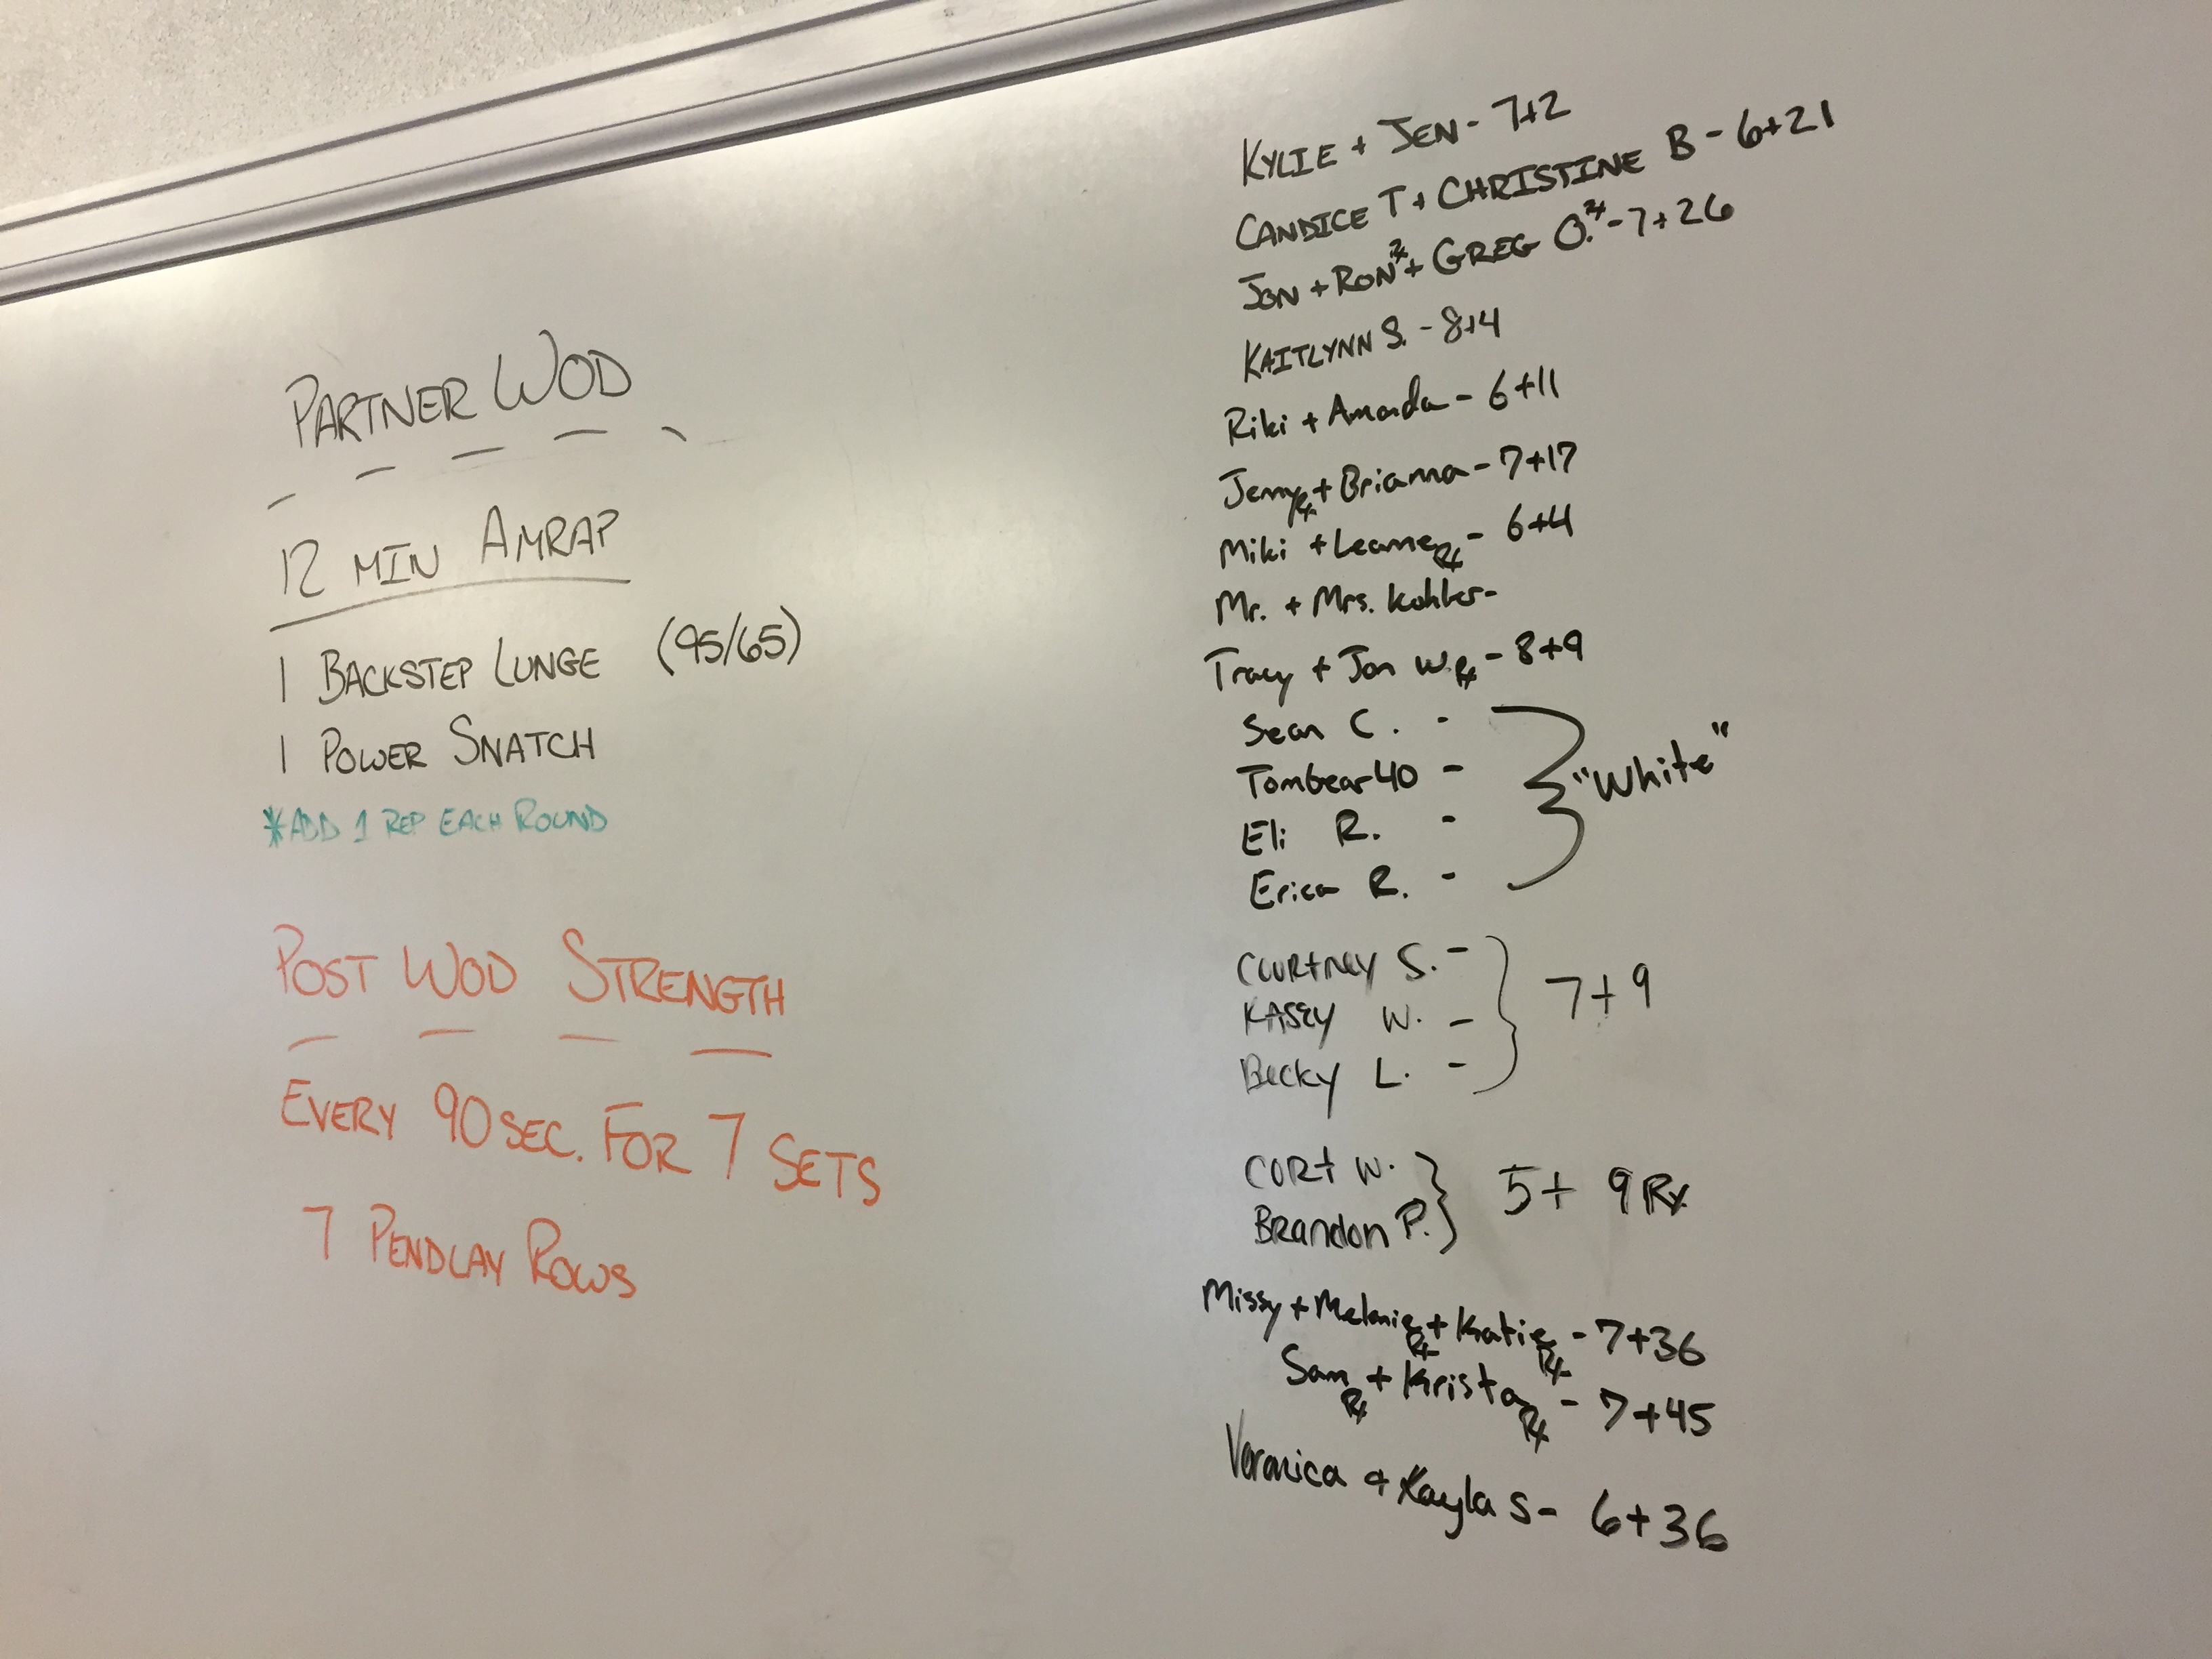 PARTNER WOD
12 MIN AMRAP
1 BACKSTEP LUNGE (95/65)
1 POWER SNATCH
*ADD 1 REP EACH ROUND
POST WOD STRENGTH
EVERY 90 SEC. FOR 7 SETS
7 PENDLAY ROWS
KYLIE + JEN - 7+2
CANDICE T + CHRISTINE B - 6+21
JON + RON Rx + GREG O. Rx - 7+26
KAITLYNN S. - 8+4
Riki + Amanda - 6+11
Jerry Rx + Brianna - 7+17
Miki + Leanne Rx - 6+4
Mr. + Mrs. Kohler -
Tracy + Jon W. Rx - 8+9
Sean C. -
TomGear40 -
Eli R. -
Erica R. -
"White"
COURTNEY S. -
KASEY W. -
Becky L. -
7+9
CORT W.
BRandon P.
5+ 9 Rx
Missy + Melanie Rx + Katie Rx - 7+36
Sam Rx + Krista Rx - 7+45
Veronica + Kayla S - 6+36